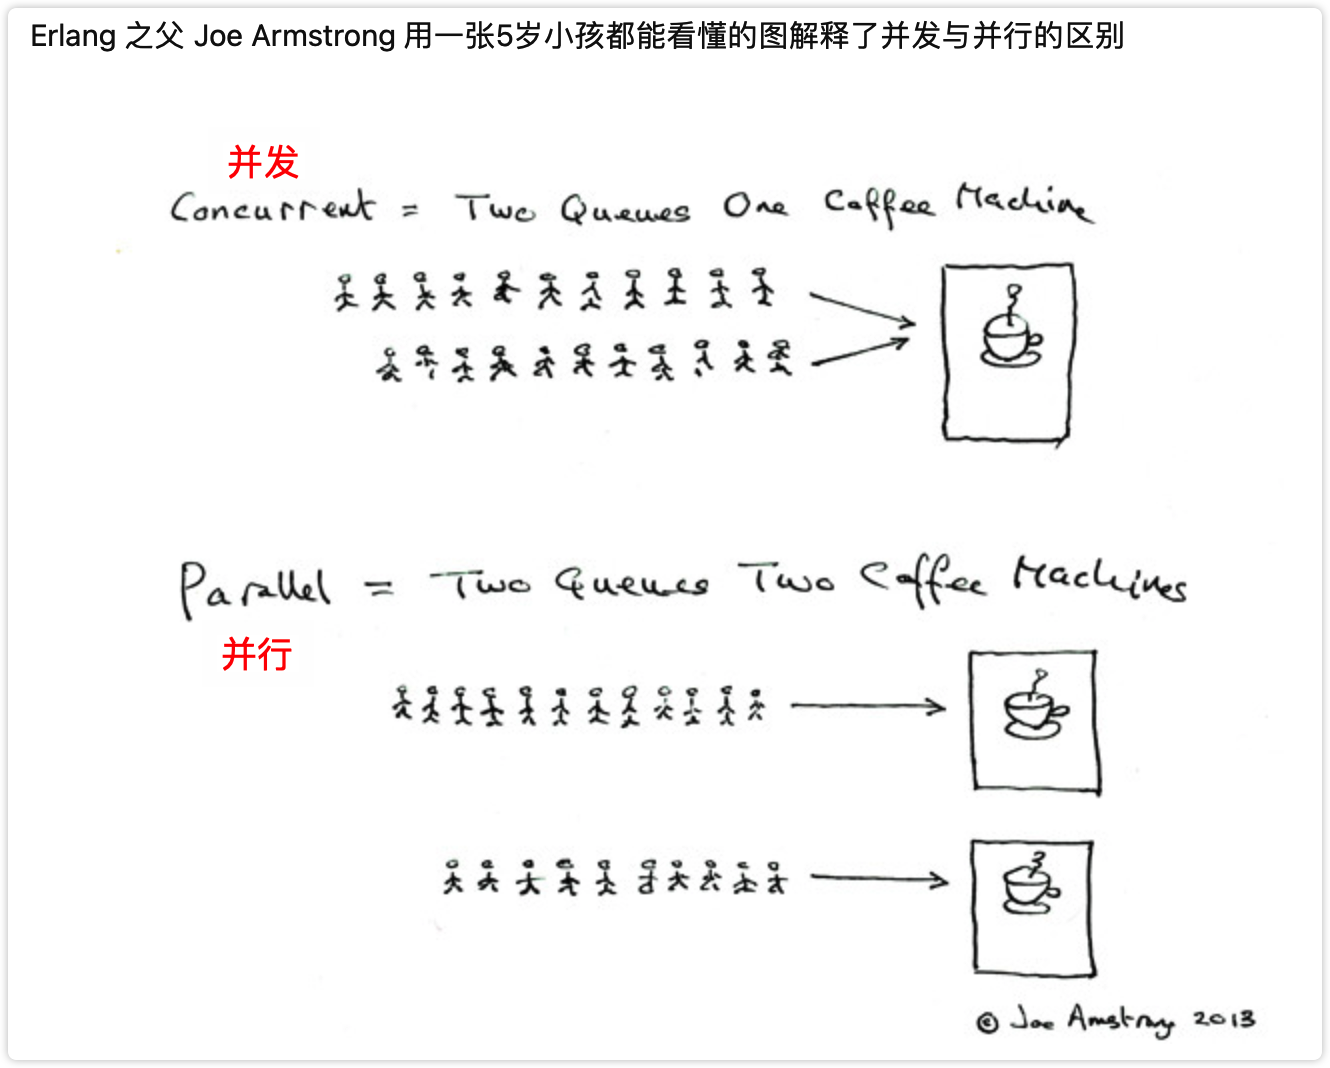 Erlang 之父 Joe Armstrong 用一张5岁小孩都能看懂的图解释了并发与并行的区别
并发
Concurrent = Two Queues One Coffee Machine
Parallel = Two Queues Two Coffee Machines
并行
© Joe Armstrong 2013